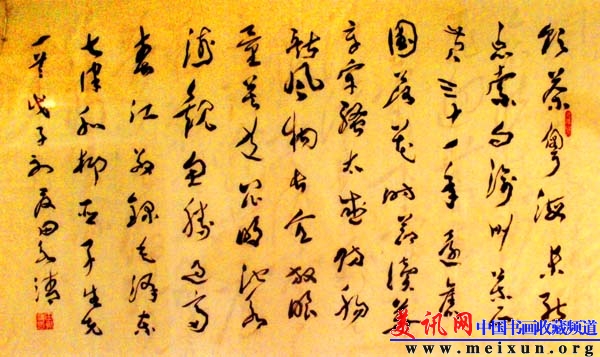 饮茶粤海未能
忘索句渝州叶正
黄三十一年还旧
国落花时节读华
章牢骚太盛防肠
断风物长宜放眼
量莫道昆明池水
浅观鱼胜过富
春江敬录毛泽东
七律和柳亚子先生
一首戊子初夏
美讯网 中国书画收藏频道
www.meixun.org